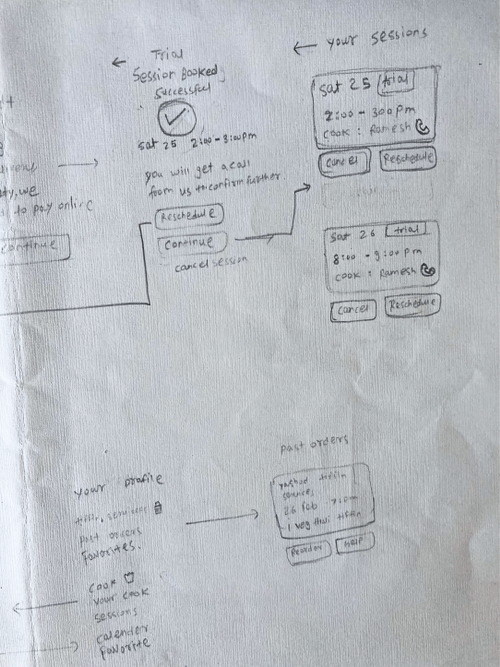 ← Trial
Session Booked
Successful
Sat 25 2:00 - 3:00pm
you will get a call
from us to confirm further
Reschedule
Continue
cancel session
ty, we
to pay online
Continue
← your sessions
Sat 25 trial
2:00 - 300pm
cook : Ramesh
Cancel Reschedule
Sat 26 trial
8:00 - 9:00 pm
cook : Ramesh
Cancel Reschedule
your profile
past orders
favorites.
cook
your cook
sessions
calender
favorite
past orders
tiffin
services
26 feb
1 veg thali tiffin
Reorder HELP